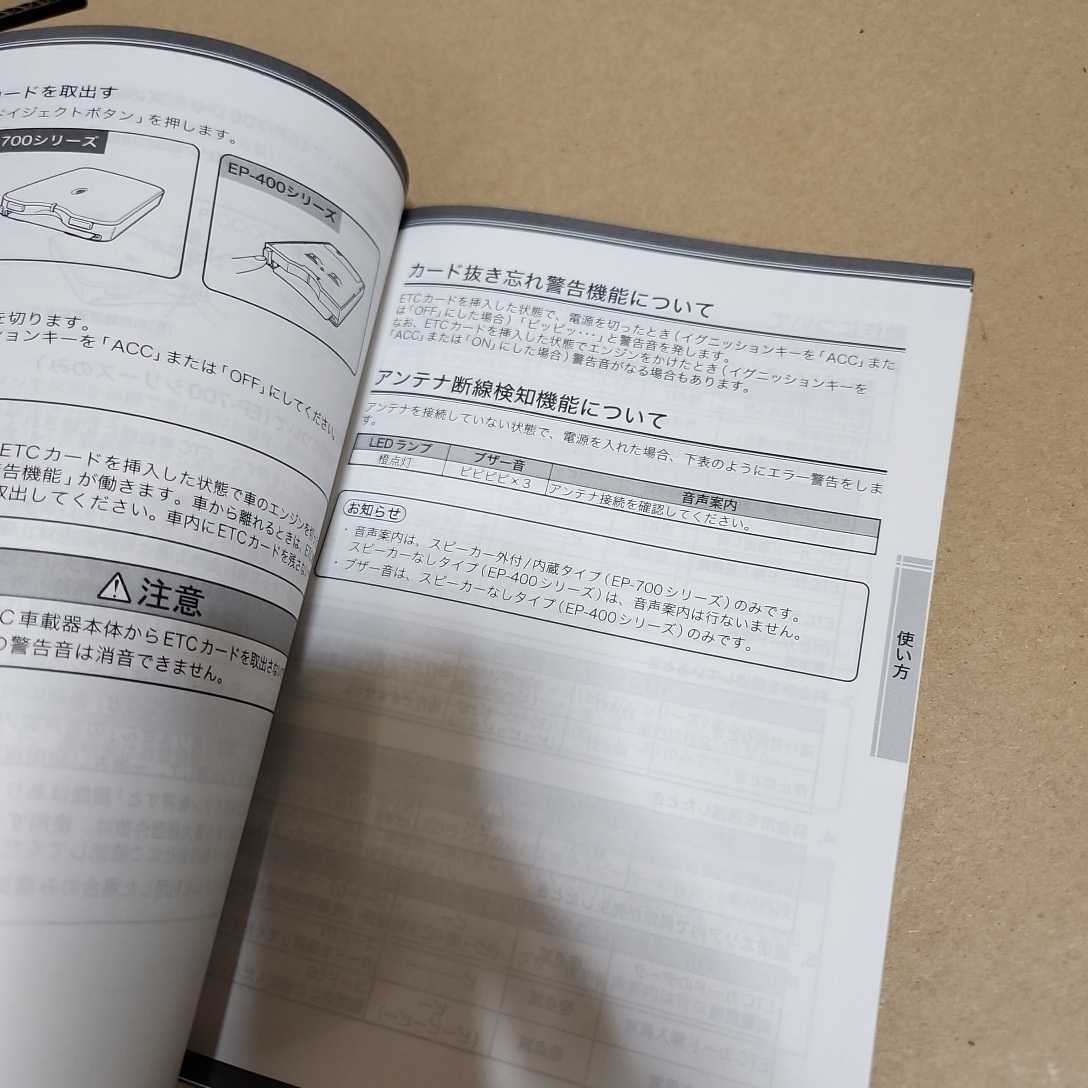 ードを取出す
イジェクトボタン」を押します。
700シリーズ
EP-400シリーズ
を切ります。
ションキーを「ACC」または「OFF」にしてください。
ETCカードを挿入した状態で車のエンジンを
告機能」が働きます。車から離れるときは、
取出してください。車内にETCカードを残さ
注意
C車載器本体からETCカードを取出さない
の警告音は消音できません。
カード抜き忘れ警告機能について
ETCカードを挿入した状態で、電源を切ったとき(イグニッションキーを「ACC」また
は「OFF」にした場合)「ピッピッ・・・」と警告音を発します。
なお、ETCカードを挿入した状態でエンジンをかけたとき(イグニッションキーを
「ACC」または「ON」にした場合)警告音がなる場合もあります。
アンテナ断線検知機能について
アンテナを接続していない状態で、電源を入れた場合、下表のようにエラー警告をしま
す。
LEDランプ ブザー音 音声案内
橙点灯 ピピピピ×3 アンテナ接続を確認してください。
お知らせ
・音声案内は、スピーカー外付/内蔵タイプ(EP-700シリーズ)のみです。
スピーカーなしタイプ(EP-400シリーズ)は、音声案内は行ないません。
・ブザー音は、スピーカーなしタイプ(EP-400シリーズ)のみです。
使い方